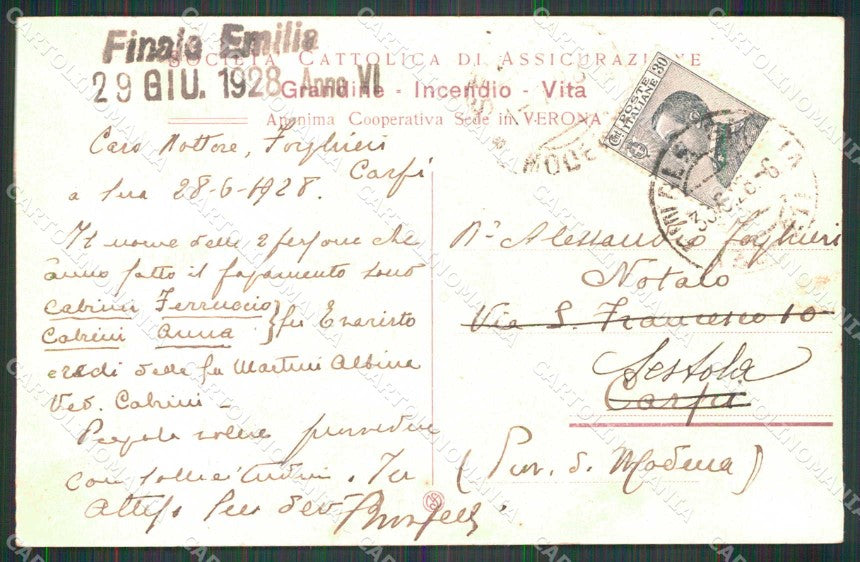 Finale Emilia
29 GIU. 1928 Anno VI
SOCIETÀ CATTOLICA DI ASSICURAZIONE
Grandine - Incendio - Vita
Anonima Cooperativa Sede in VERONA
Caro Dottore, Forghieri
Carpi
a sua 28-6-1928.
Il nome delle 2 persone che
ànno fatto il pagamento sono
Cabrini Ferruccio
Cabrini Anna } fu Evaristo
eredi della fu Martini Albina
Ved. Cabrini -
provvedere
con
POSTE ITALIANE
30
MODE
Alessandro Forghieri
Notaio
Via S. Francesco 10
Sestola
Carpi
(Prov. di Modena)
CARTOLINOMANIA